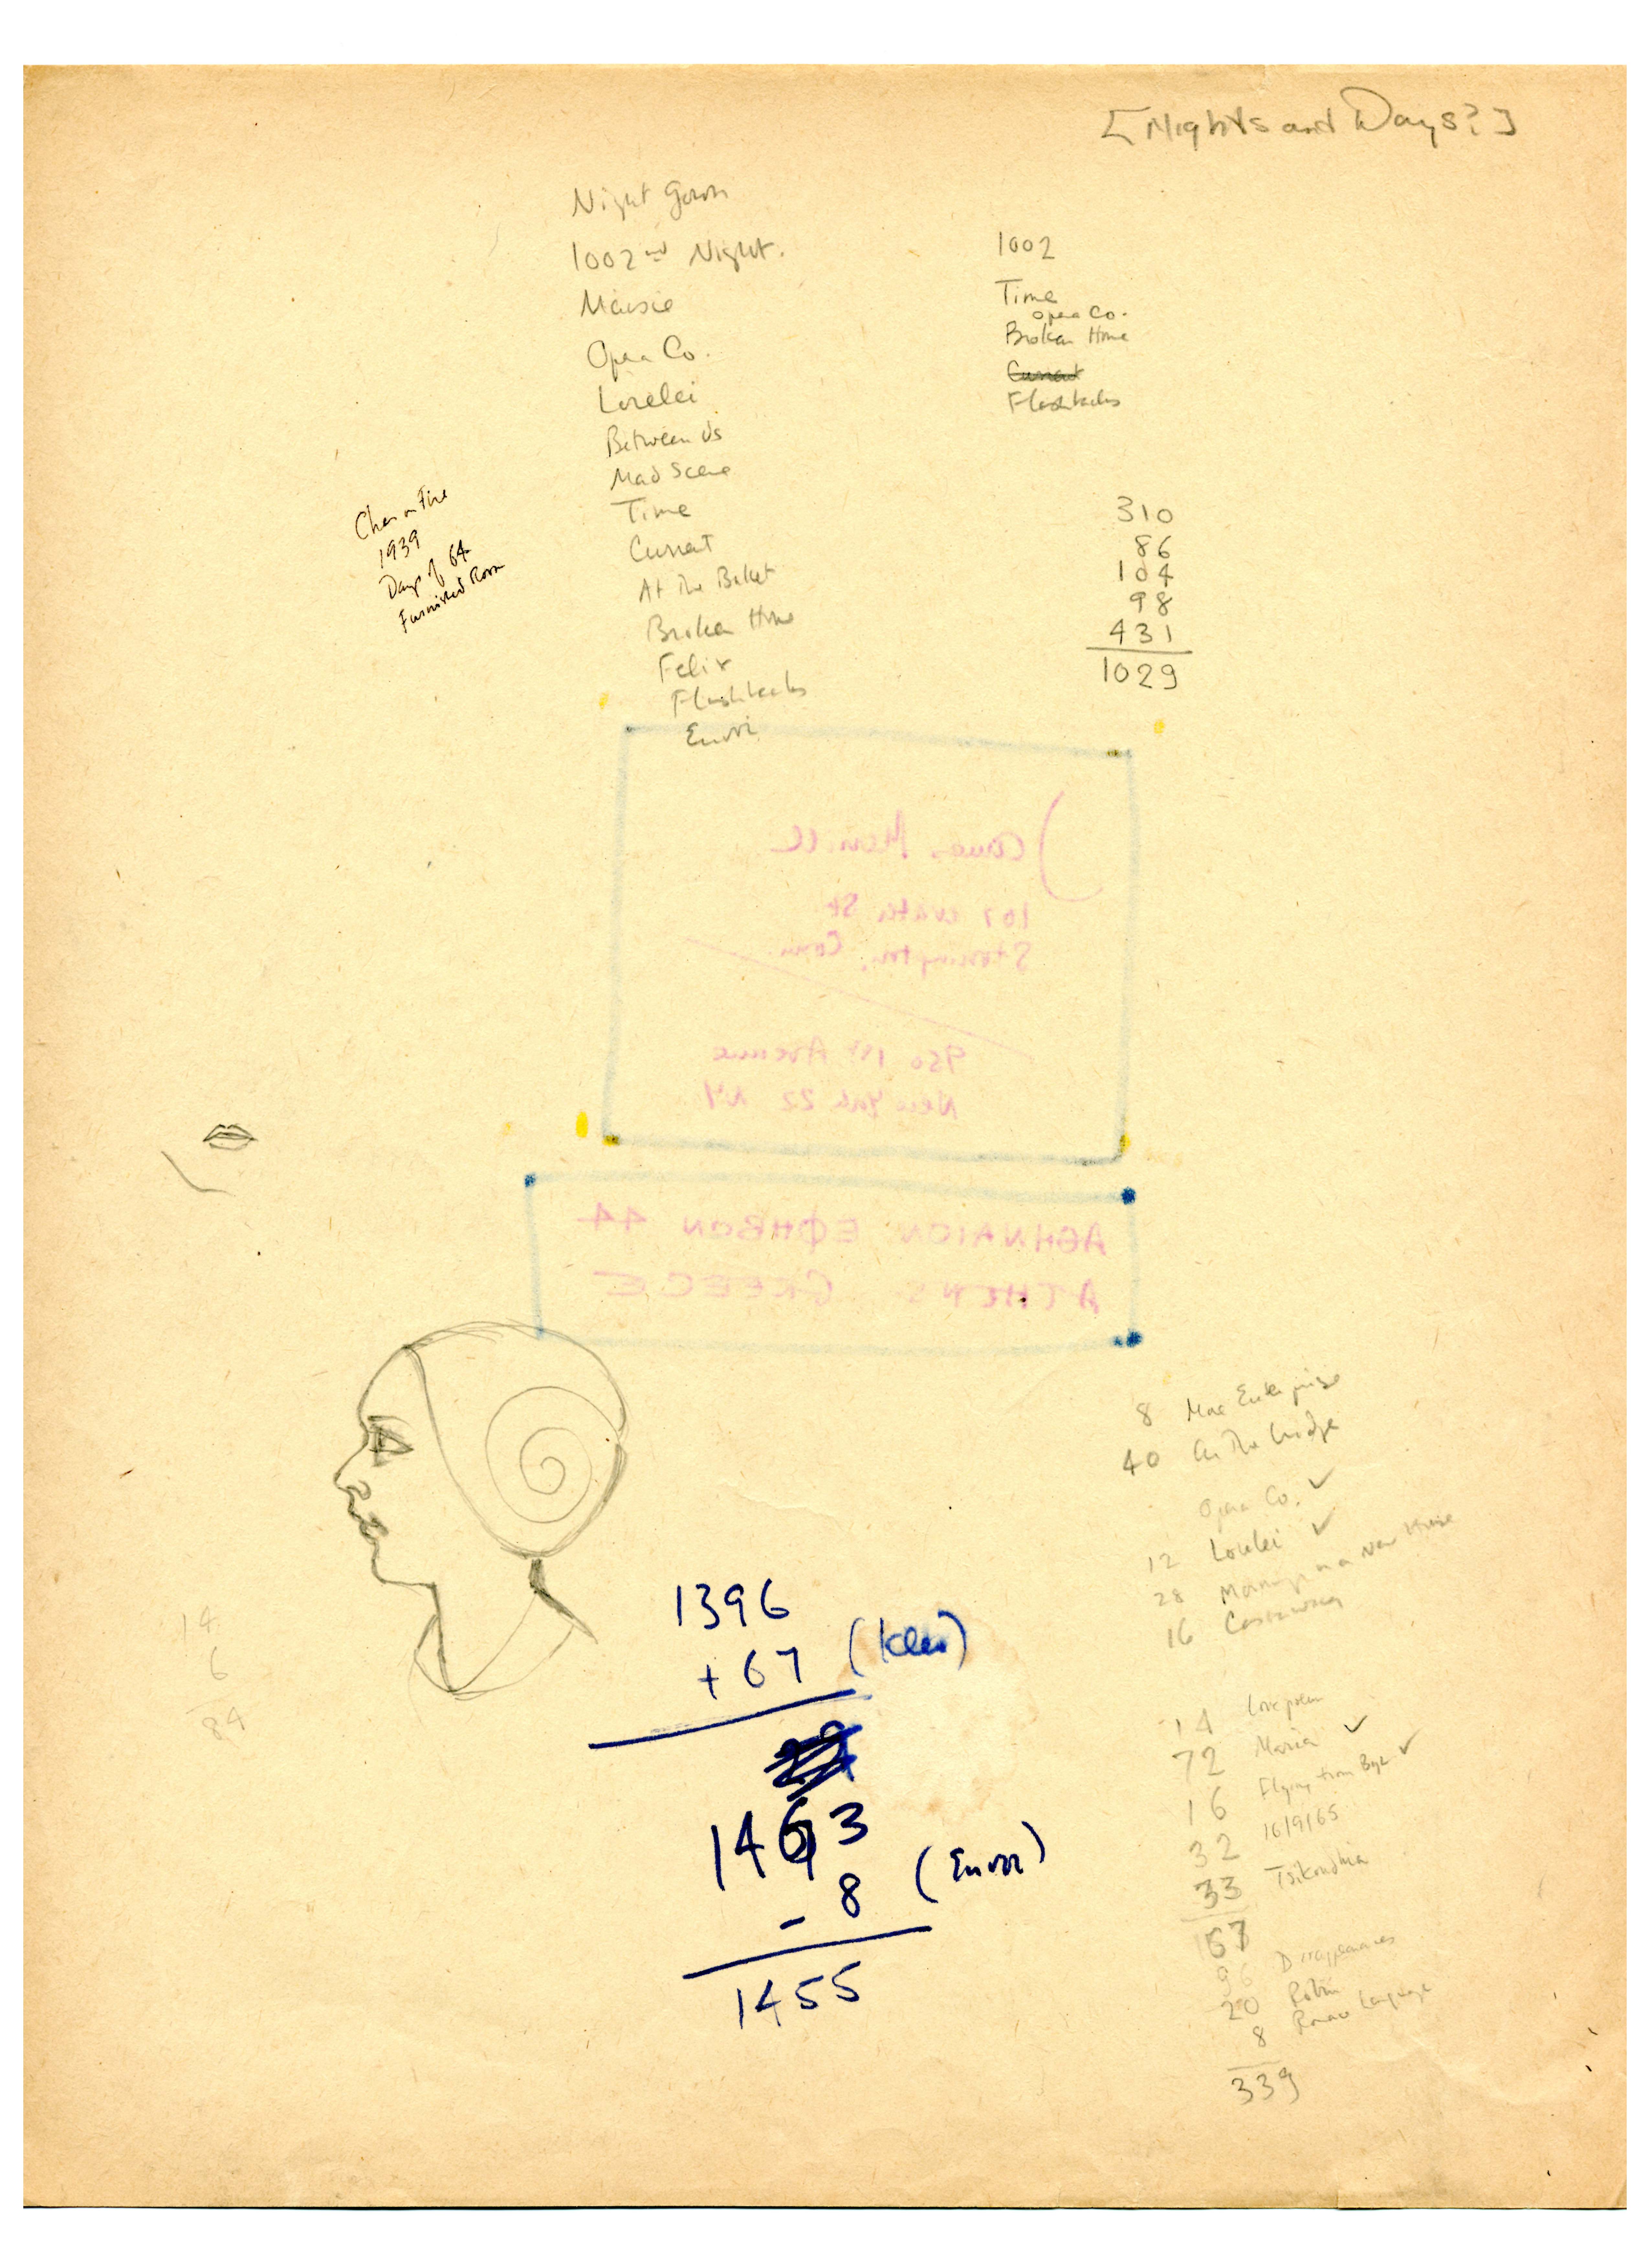 [Nights and Days?]
Night Gown
1002nd Night.
Maisie
Opera Co.
Lorelei
Between Us
Mad Scene
Time
Current
At the Bullet
Broken Home
Felix
Flashbacks
Envoi
1002
Time
Opera Co.
Broken Home
Current
Flashbacks
Chez on Fire
1939
Days of 64
Furnished Room
310
86
104
98
431
1029
James Merrill
107 Water St
Stonington, Conn.
950 1st Avenue
New York 22 NY
ΑΘΗΝΑΙΟΝ ΕΦΗΒΟΝ 44
ATHENS GREECE
14
6
84
1396
+ 67 (Kleo)
1463
- 8 (Envoi)
1455
8 More Enterprise
40 On The Bridge
Opera Co. ✓
12 Lorelei ✓
28 Mornings in a New House
16 Casuistry
14 Love poem
72 Maria ✓
16 Flying from Byz ✓
32 16/9/65
33 Tsikoudhia
167
96 Disappearances
20 Robin
8 Roman Language
339